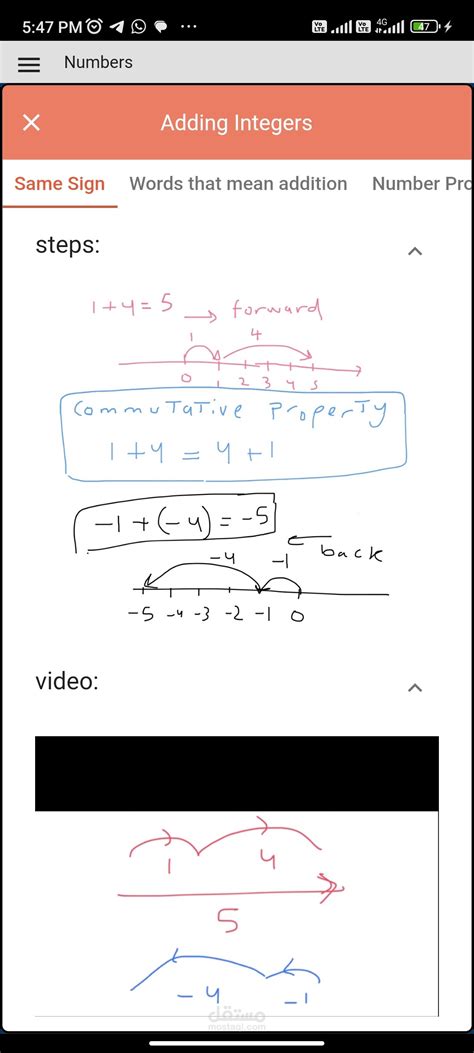 5:47 PM
Vo LTE Vo LTE 4G 47
Numbers
Adding Integers
Same Sign Words that mean addition Number Pro
steps:
1+4=5 → forward
1 4
0 1 2 3 4 5
Commutative Property
1+4 = 4+1
-1+(-4)=-5
← back
-4 -1
-5 -4 -3 -2 -1 0
video:
1 4
5
-4 -1
مستقل
mostaql.com